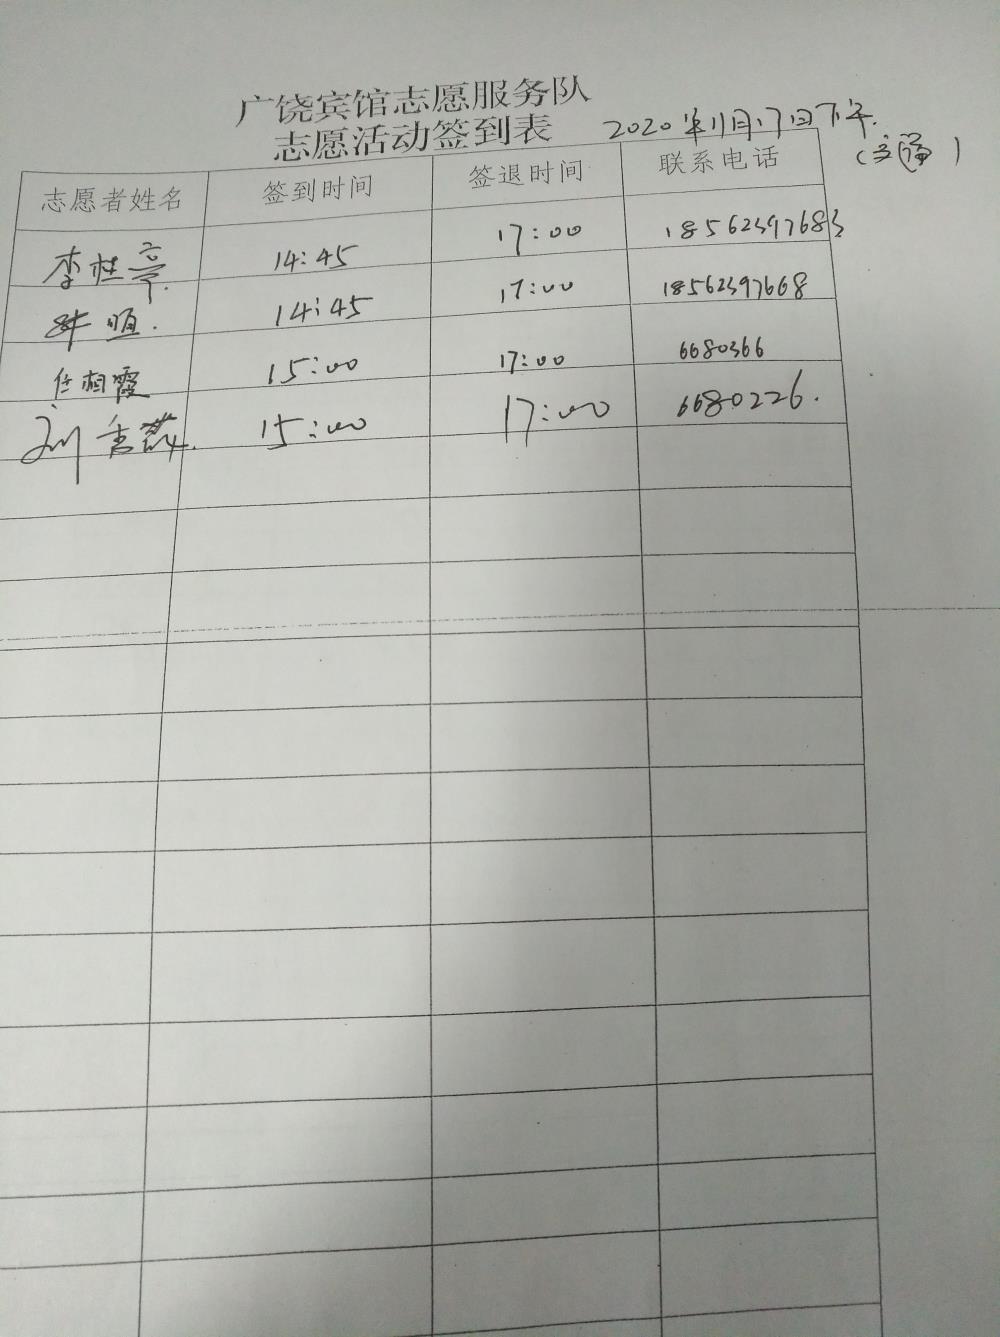 广饶宾馆志愿服务队
志愿活动签到表 2020年11月17日下午.
志愿者姓名 签到时间 签退时间 联系电话
李桂亭. 14:45 17:00 18562397683
14:45 17:00 18562397668
任相霞 15:00 17:00 6680366
刘 15:00 17:00 6680226.